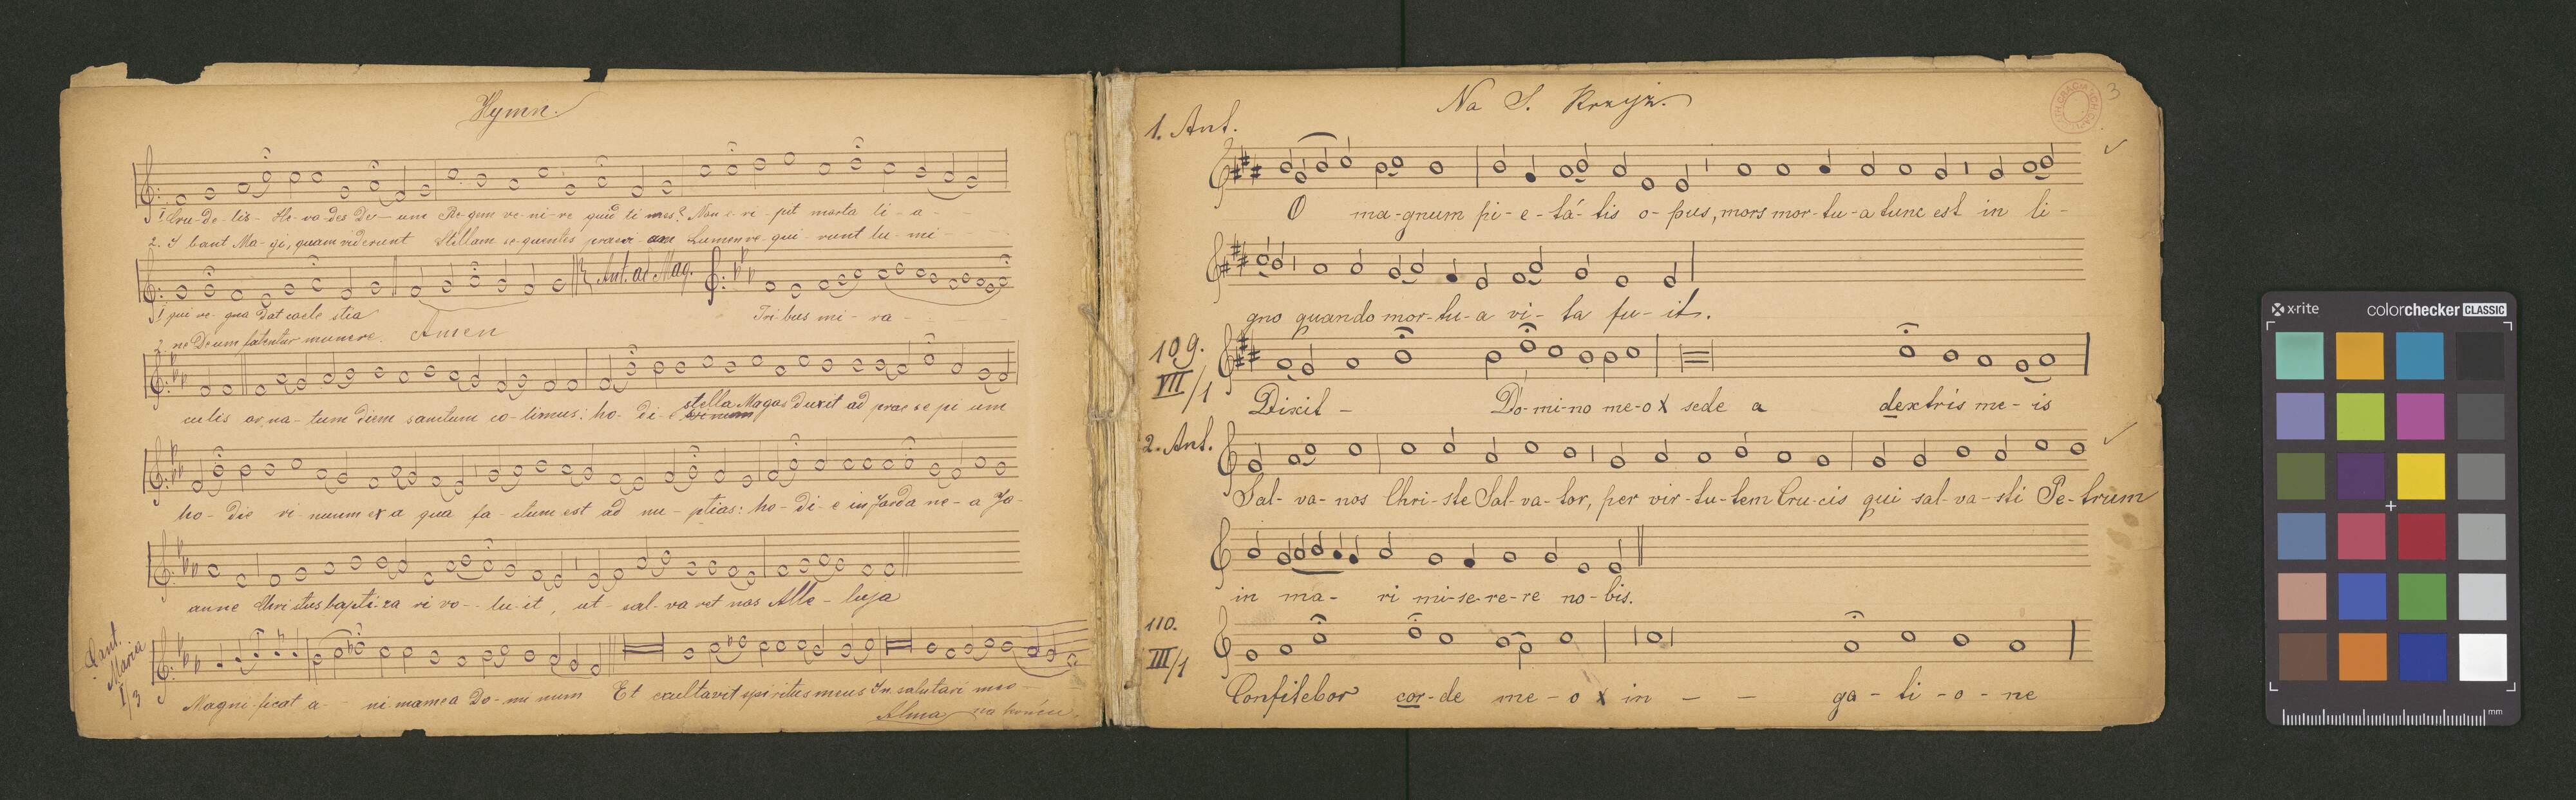 Hymn.
1 Cru-de-lis- He-ro-des De-um Re-gem ve-ni-re quid ti mes? Non e-ri-pit morta li-a-
2. I bant Ma-gi, quam viderunt Stellam se-quentes praevi-am Lumen re-qui-runt lu-mi
Ant. ad Mag.
1 qui re-gna Dat coele stia Tri-bus mi-ra-
2. ne Deum fatentur munere. Amen
culis or na-tum diem sanctum co-limus: ho-di-e stella Magos duxit ad prae se pi um
ho-die vi-num ex a qua fa-ctum est ad nu-ptias: ho-di-e in Jorda ne-a Jo-
anne Christus bapti-za ri vo-lu-it, ut sal-va ret nos Alle-luja
Cant.
Maria
I/3
Magni-ficat a-ni ma mea Do-mi num Et exultavit spiritus meus In salutari meo-
Alma na końcu.
3
Na S. Krzyż.
1. Ant.
O ma-gnum pi-e-tá-tis o-pus, mors mor-tu-a tunc est in li-
gno quando mor-tu-a vi-ta fu-it.
109.
VII/1
Dixit - Do-mi-no me-o x sede a dextris me-is
2. Ant.
Sal-va-nos Chri-ste Sal-va-tor, per vir-tu-tem Cru-cis qui sal-va-sti Pe-trum
in ma-ri mi-se-re-re no-bis.
110.
III/1
Confitebor cor-de me-o x in - - ga-ti-o-ne
x-rite colorchecker CLASSIC
mm